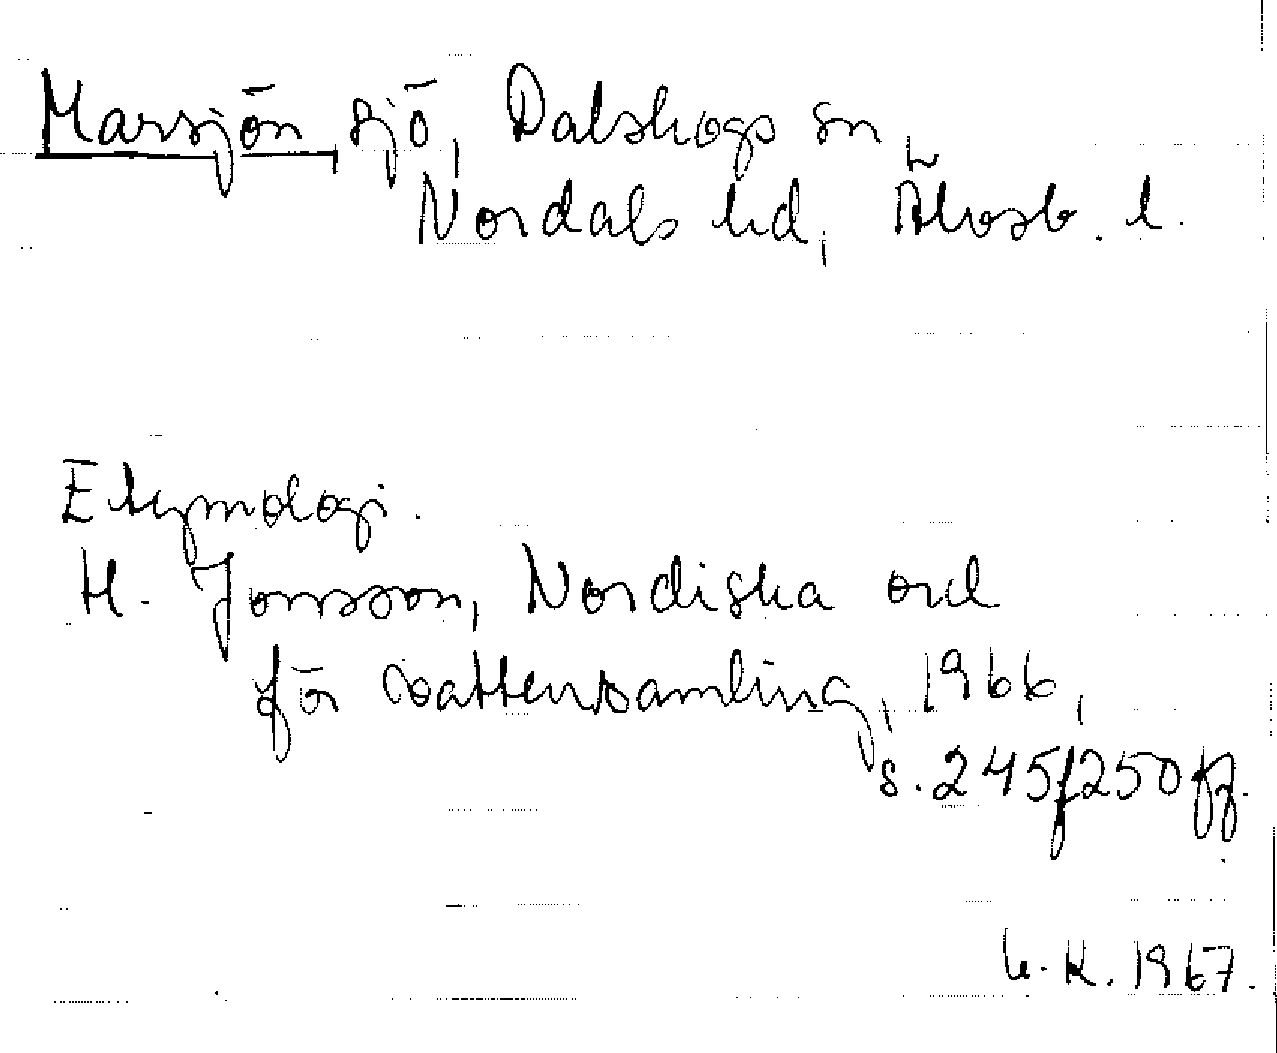 Marsjön, sjö, Dalskogs sn,
Nordals hd, Älvsb. l.
Etymologi.
H. Jonsson, Nordiska ord
för vattensamling, 1966,
s. 245f 250 ff.
U. K. 1967.